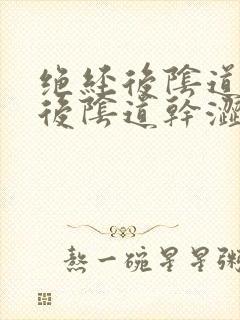 绝经後陰道
後陰道幹澀
熬一碗星星粥